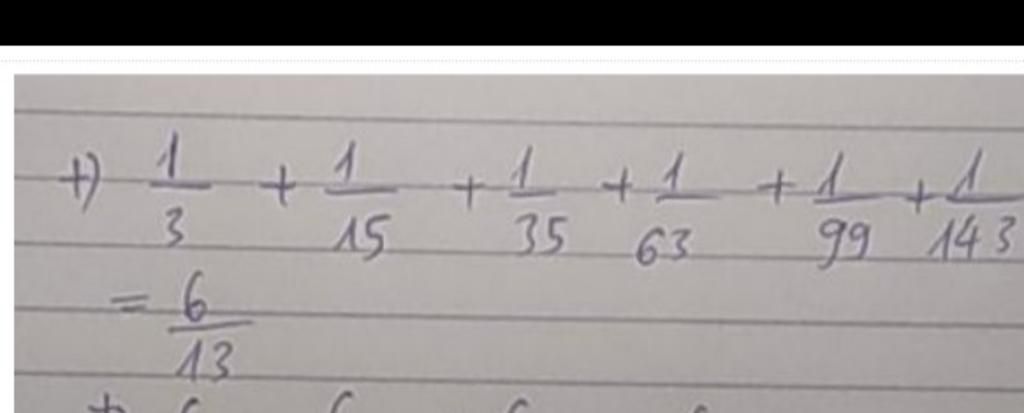 +) 1/3 + 1/15 + 1/35 + 1/63 + 1/99 + 1/143
= 6/13